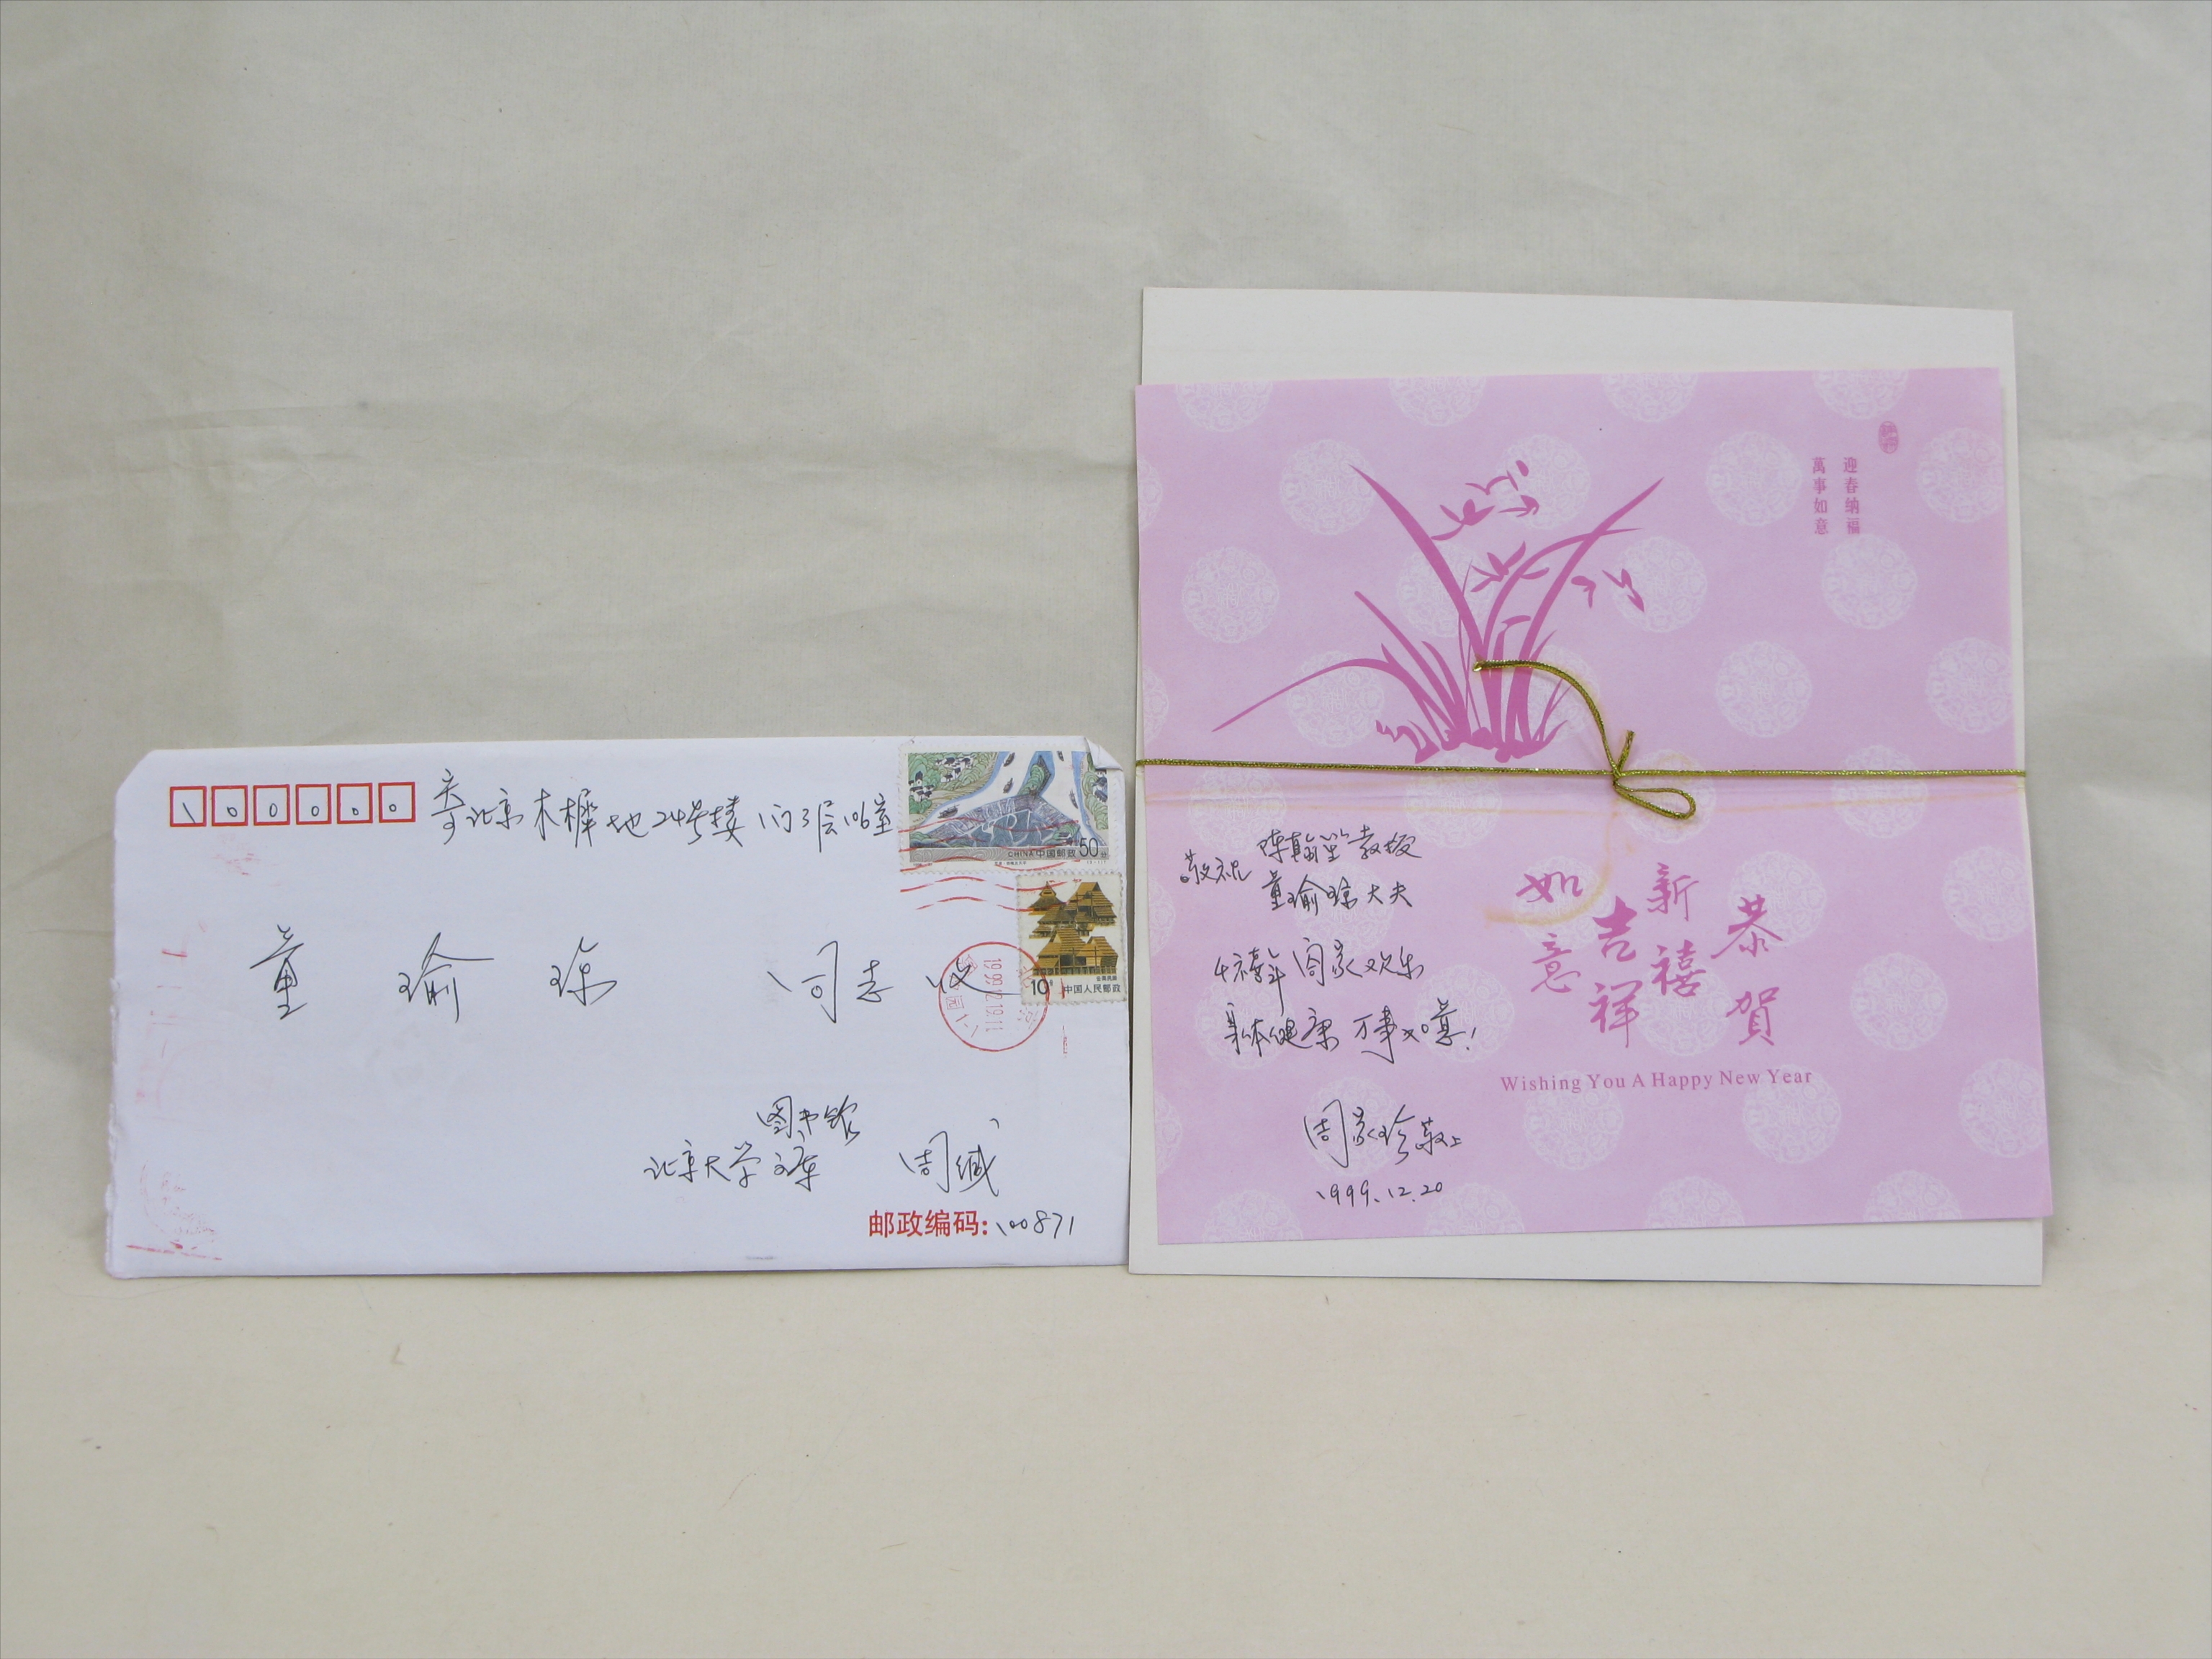 100000
寄北京木樨地24号楼1门3层106室
董瑜琼 同志收
图书馆
北京大学文库 周缄
邮政编码:100871
CHINA中国邮政 50分
10分 中国人民邮政
1999.12.19.11
迎春纳福
萬事如意
恭賀
新禧
吉祥
如意
Wishing You A Happy New Year
陈翰笙教授
敬祝
董瑜琼大夫
千禧年 阖家欢乐
身体健康 万事如意!
周家珍敬上
1999.12.20